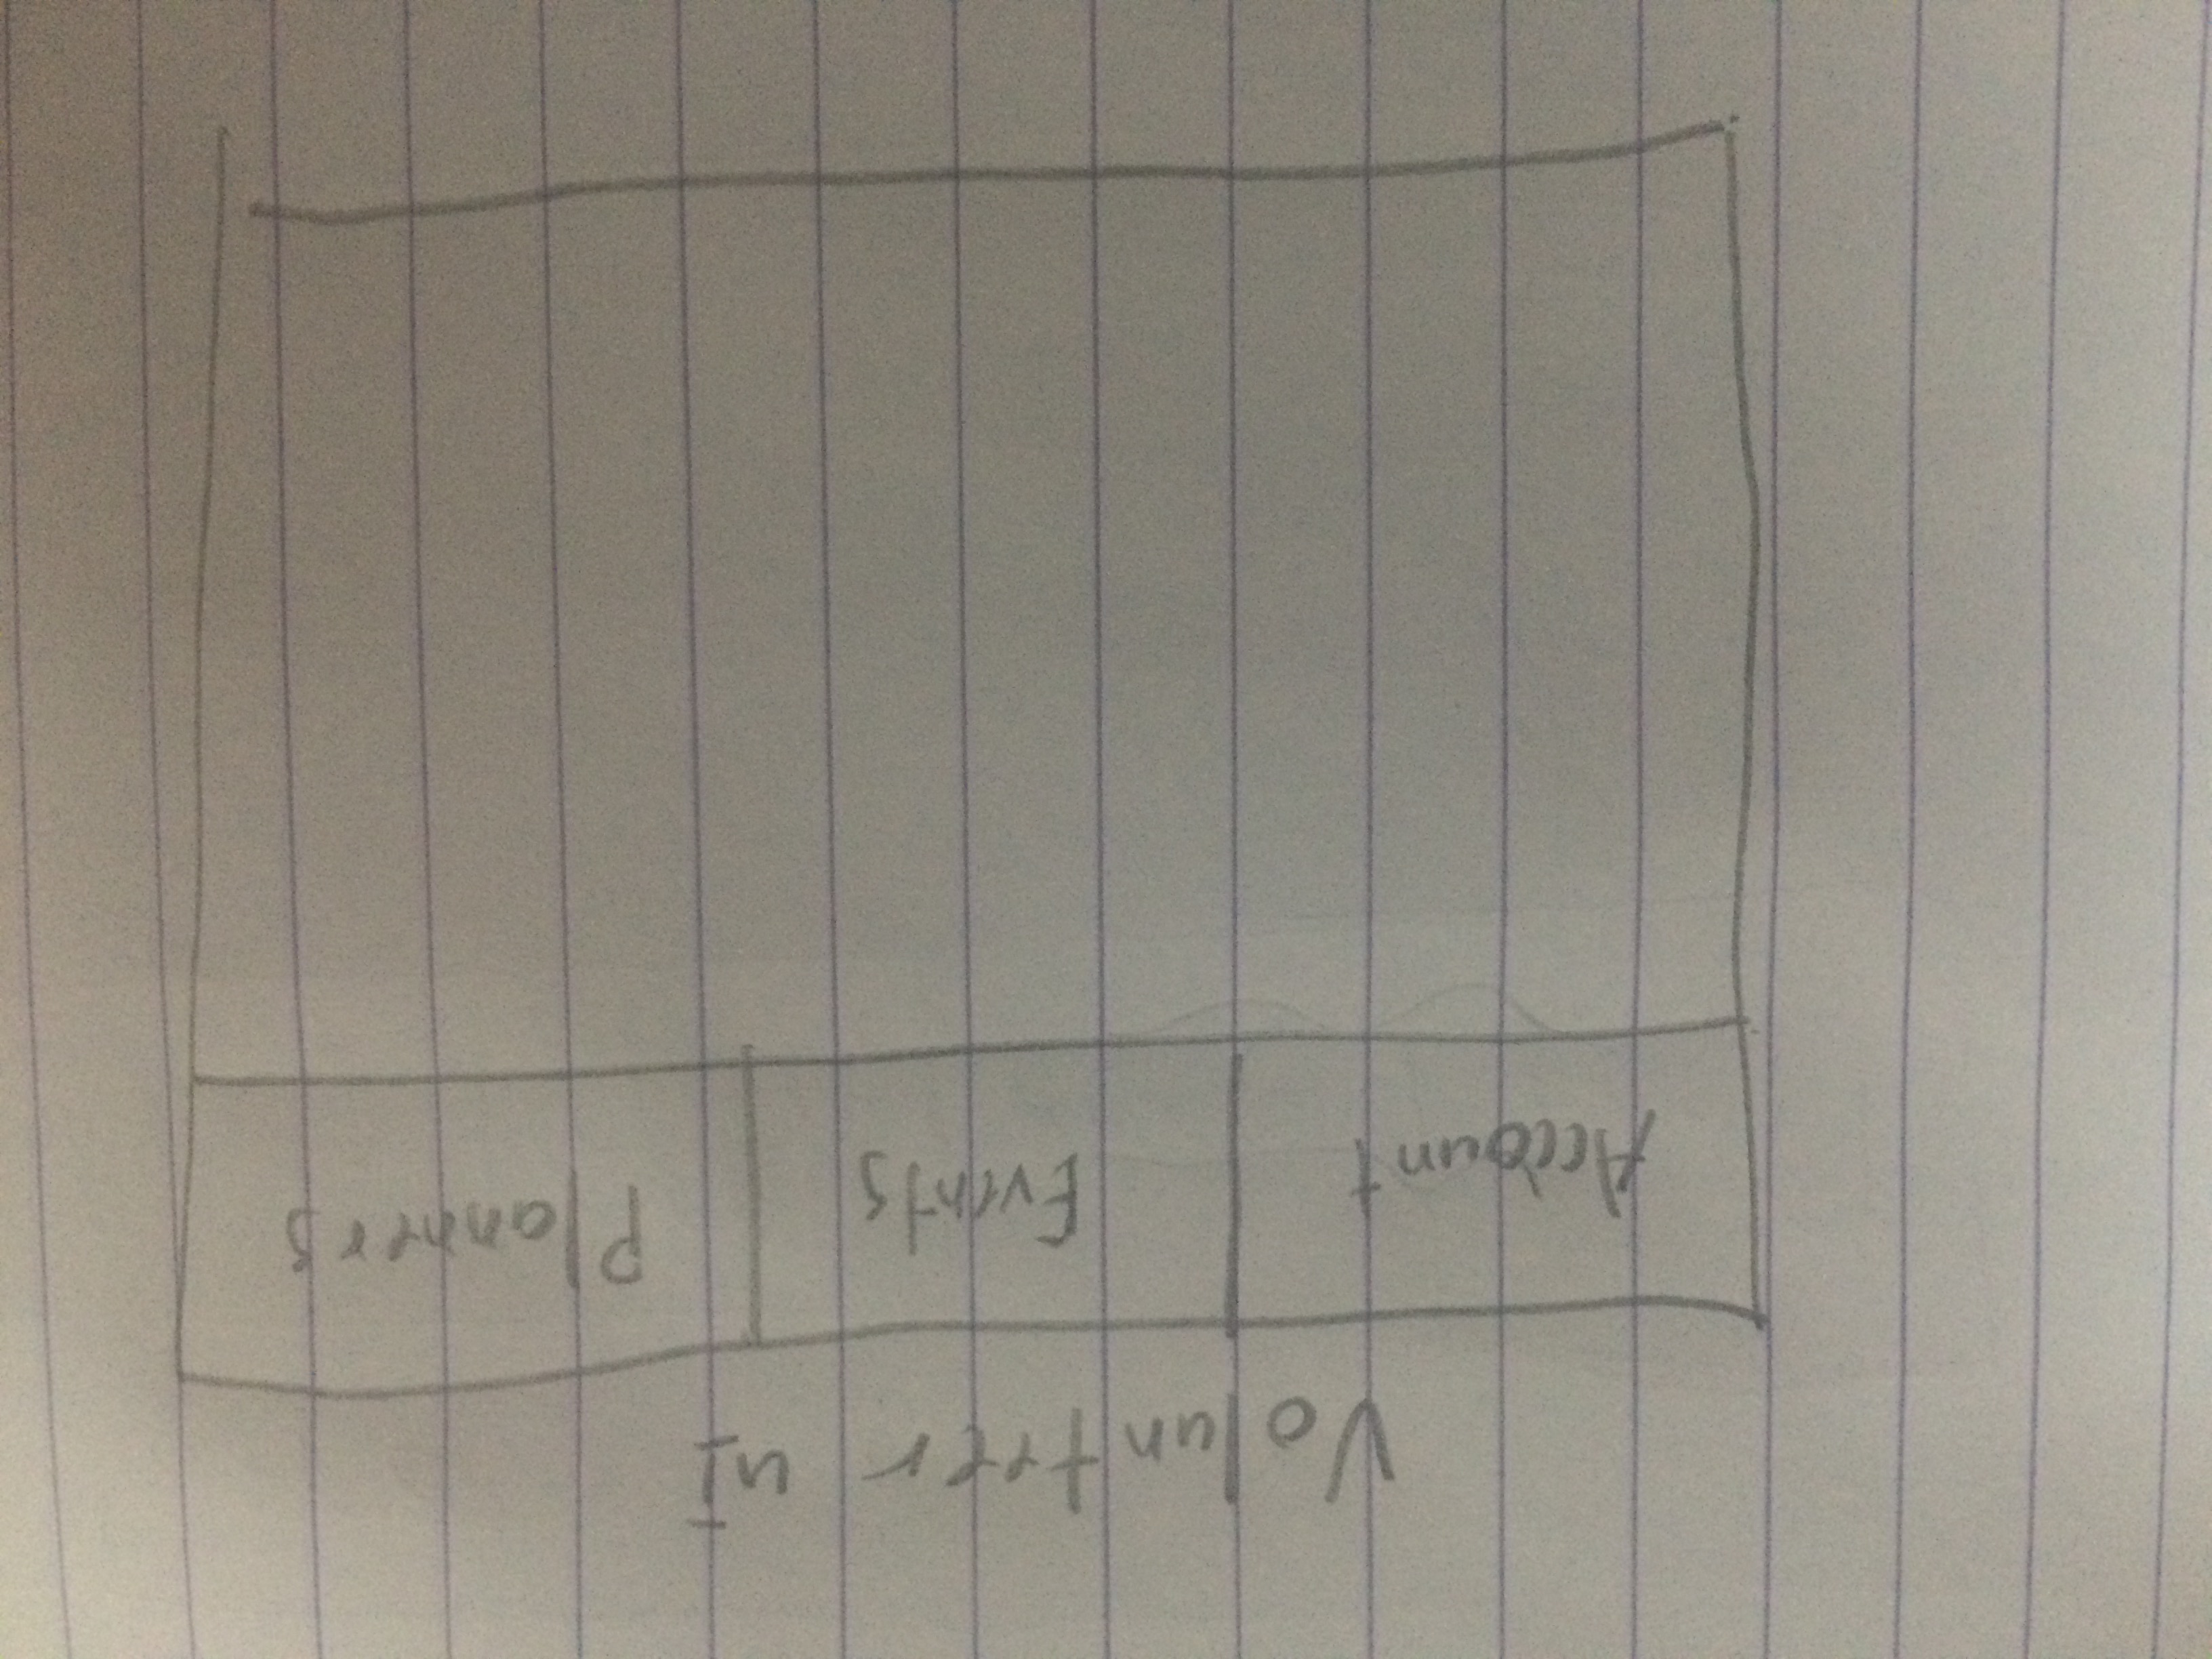 Volunteer uI
Account Events Planners